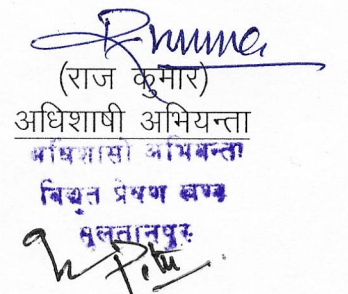 (राज कुमार)
अधिशाषी अभियन्ता
अधिशासी अभियन्ता
विद्युत प्रेषण खण्ड
सुलतानपुर